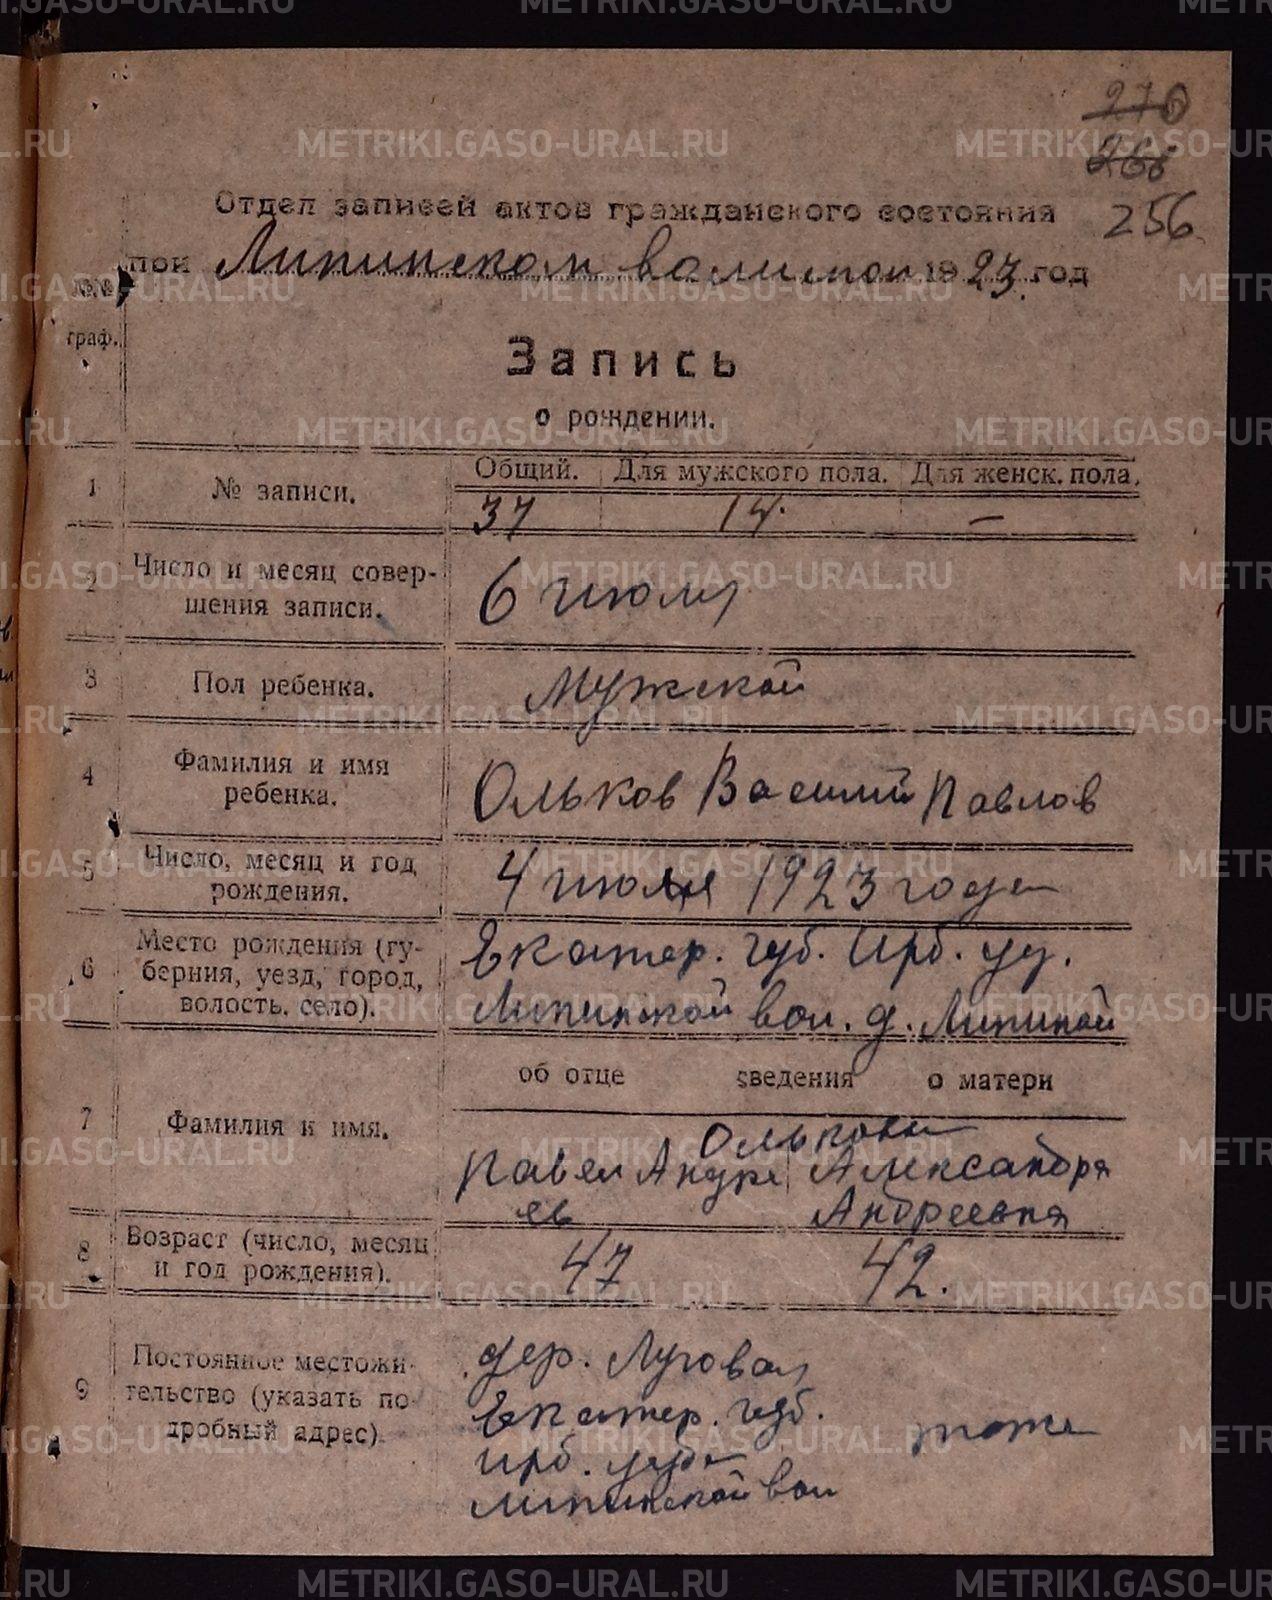 270
266
256
Отдел записей актов гражданского состояния
при Липинском волисполк 1923 год
№№ граф.
Запись
о рождении.
1 № записи. Общий. Для мужского пола. Для женск. пола.
37 14. —
2 Число и месяц совер-
шения записи. 6 июля
3 Пол ребенка. Мужской
4 Фамилия и имя
ребенка. Ольков Василий Павлов
5 Число, месяц и год
рождения. 4 июля 1923 года
6 Место рождения (гу-
берния, уезд, город,
волость, село). Екатер. губ. Ирб. уу.
Липинской вол. д. Липиной
об отце сведения о матери
7 Фамилия и имя. Ольковы
Павел Андре Александра
ев Андреевна
8 Возраст (число, месяц
и год рождения). 47 42.
9 Постоянное местожи-
тельство (указать по-
дробный адрес).
дер. Луговая
Екатер. губ. тоже
Ирб. уезда
Липинской вол
METRIKI.GASO-URAL.RU